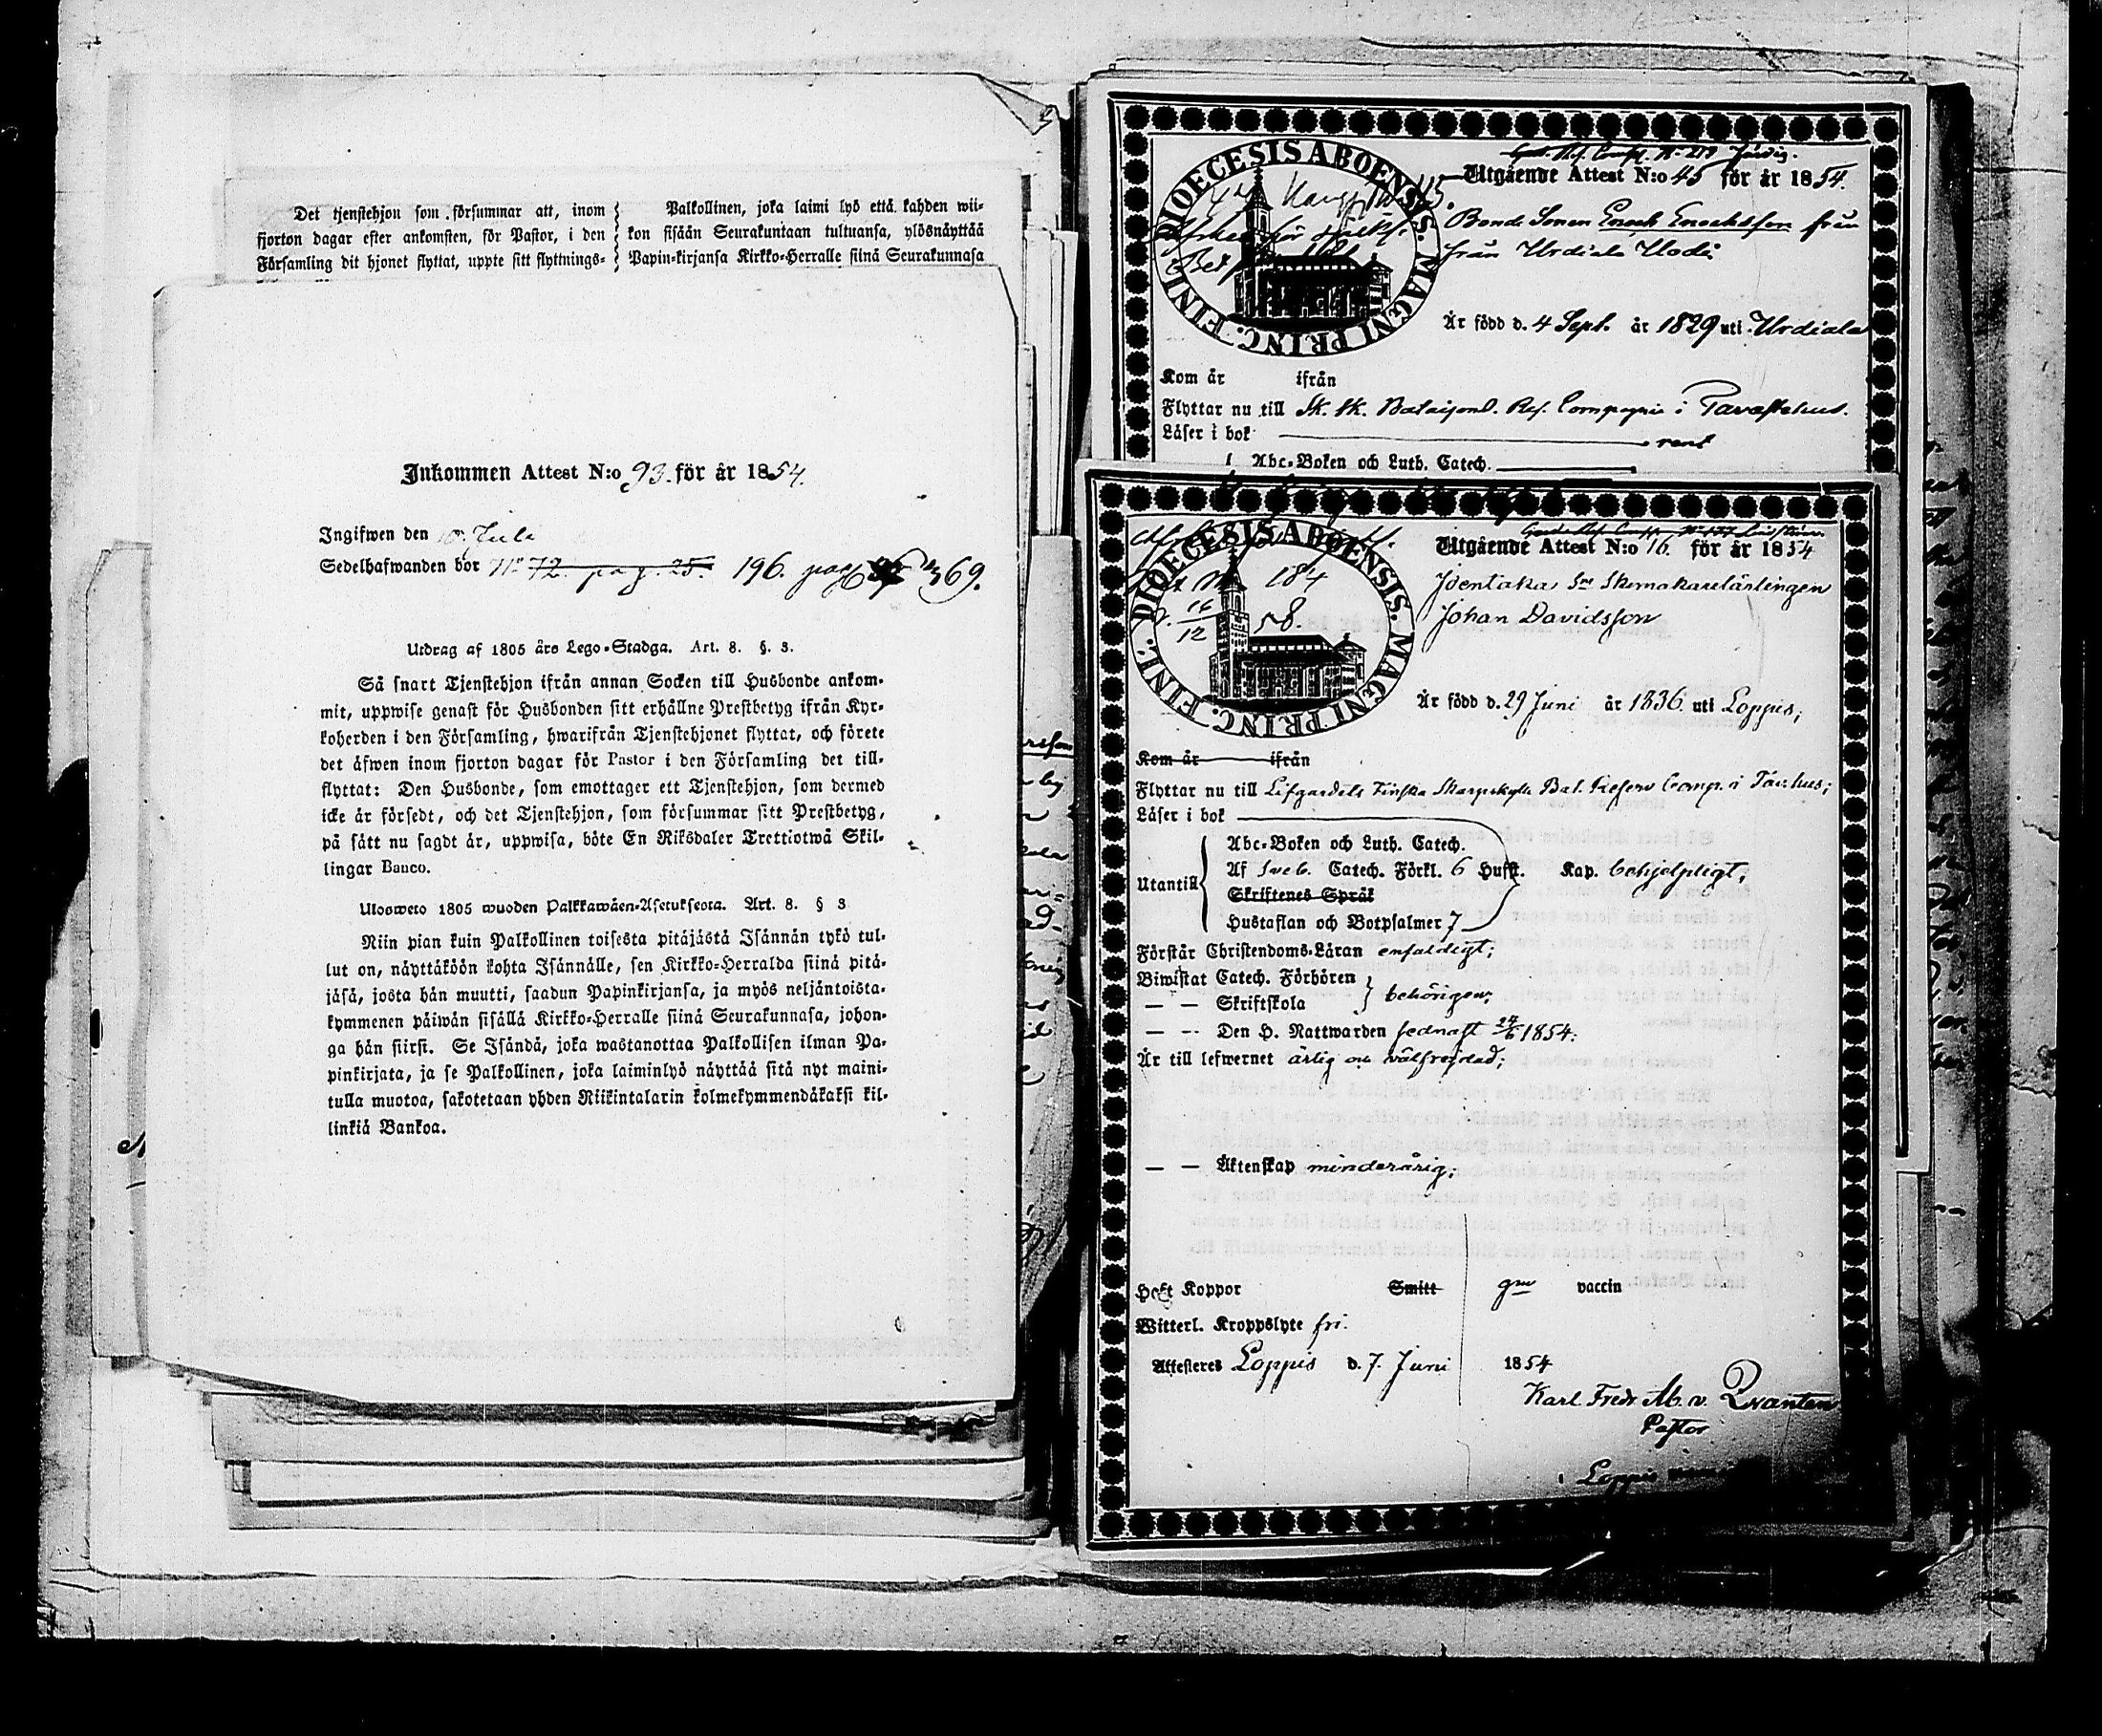 Det tjenstehjon som försummar att, inom
fjorton dagar efter ankomsten, för Pastor, i den
Församling dit hjonet flyttat, uppte sitt flyttnings-
Palkollinen, joka laimi lyö että kahden wii-
kon sisään Seurakuntaan tultuansa, ylösnäyttää
Papin-kirjansa Kirkko-Herralle siinä Seurakunnasa
Inkommen Attest N:o 93. för år 1854.
Ingifwen den Juli
Sedelhafwanden bor N:o 72. pag. 25. 196. pag 369.
Utdrag af 1805 års Lego-Stadga. Art. 8. §. 3.
Så snart Tjenstehjon ifrån annan Socken till Husbonde ankom-
mit, uppwise genast för Husbonden sitt erhållne Prestbetyg ifrån Kyr-
koherden i den Församling, hwarifrån Tjenstehjonet flyttat, och förete
det äfwen inom fjorton dagar för Pastor i den Församling det till-
flyttat: Den Husbonde, som emottager ett Tjenstehjon, som dermed
icke är försedt, och det Tjenstehjon, som försummar sitt Prestbetyg,
på sätt nu sagdt är, uppwisa, böte En Riksdaler Trettiotwå Skil-
lingar Banco.
Ulosweto 1805 wuoden Palkkawäen-Asetuksesta. Art. 8. § 3
Niin pian kuin Palkollinen toisesta pitäjästä Isännän tykö tul-
lut on, näyttäköön kohta Isännälle, sen Kirkko-Herralda siinä pitä-
jäsä, josta hän muutti, saadun Papinkirjansa, ja myös neljäntoista-
kymmenen päiwän sisällä Kirkko-Herralle siinä Seurakunnasa, johon-
ga hän siirsi. Se Isändä, joka wastanottaa Palkollisen ilman Pa-
pinkirjata, ja se Palkollinen, joka laiminlyö näyttää sitä nyt maini-
tulla muotoa, sakotetaan yhden Riikintalarin kolmekymmendäkaksi kil-
linkiä Bankoa.
DIOECESIS ABOENSIS. MAGNI PRINC. FINL.
Utgående Attest N:o 45 för år 1854.
Bonde Sonen Enoch Enochsson från
från Urdiala
Är född d. 4 Sept. år 1829 uti Urdiala
Kom år ifrån
Flyttar nu till Sk. Bataijond. Res. Compagnie i Tavastehus.
Läser i bok rent
Abc-Boken och Luth. Catech.
DIOECESIS ABOENSIS. MAGNI PRINC. FINL.
184
16/12 58.
Utgående Attest N:o 16. för år 1854
Joentaka Skomakarelärlingen
Johan Davidsson
Är född d. 29 Juni år 1836 uti Loppis;
Kom år ifrån
Flyttar nu till Lifgardets Finska Skarpskytte Bat. Reserv Comp. i Tav:hus;
Läser i bok
Utantill
Abc-Boken och Luth. Catech.
Af Sveb. Catech. Förkl. 6 Hufst. Kap. behjelpligt;
Skriftenes Språk
Hustaflan och Botpsalmer 7
Förstår Christendoms-Läran enfaldigt;
Biwistat Catech. Förhören
— — Skriftskola behörigen;
— — Den H. Nattwarden sednast 1854:
Är till lefwernet ärlig och välfrejdad;
— — Äktenskap minderårig;
Haft Koppor Smitt vaccin
Witterl. Kroppslyte fri.
Attesteras Loppis d. 7. Juni 1854
Karl Fredr. Ab. v. Qvanten
Pastor
Loppis